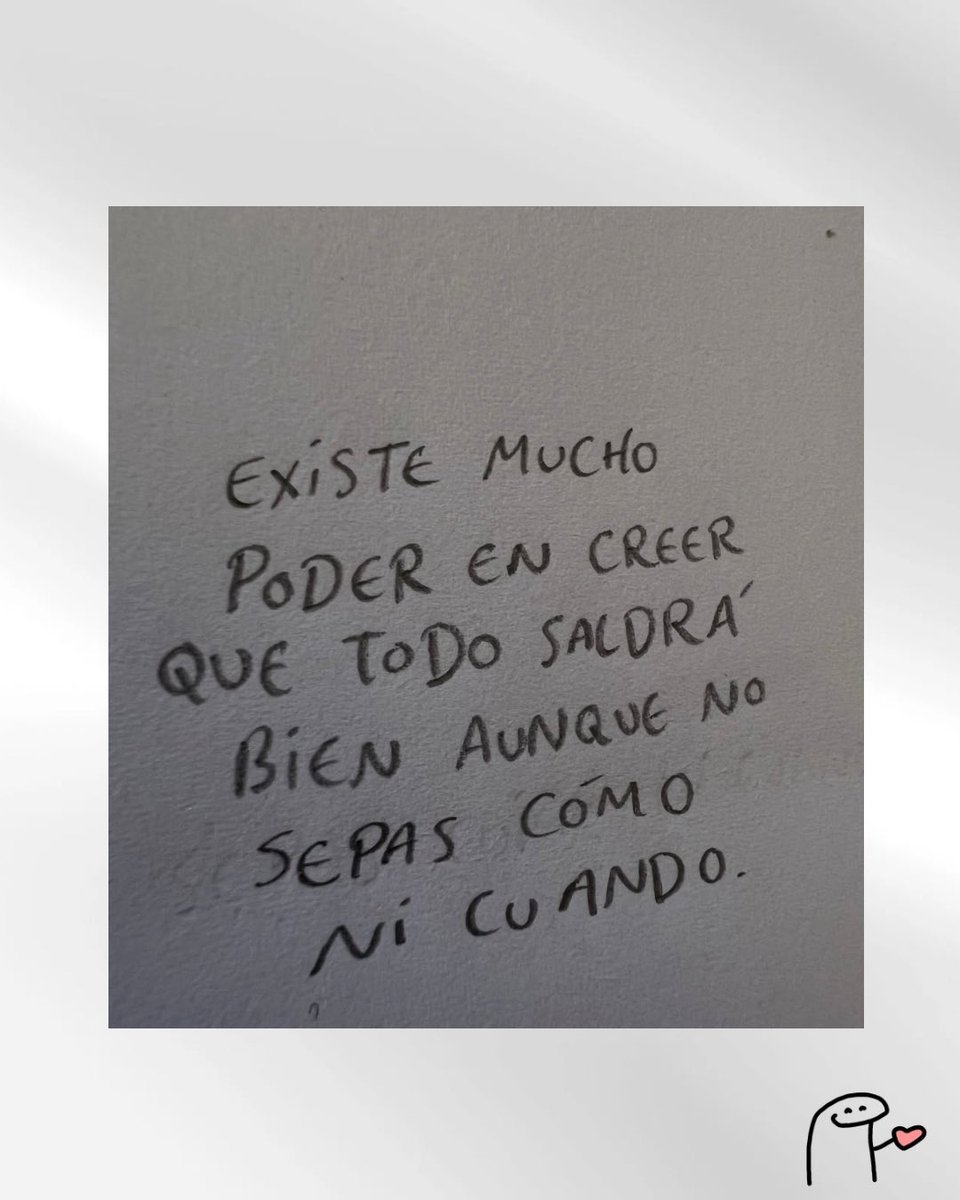 EXiSTE MUCHO
PODER EN CREER
QUE TODO SALDRÁ
BiEN AUNQUE NO
SEPAS CÓMO
Ni CUANDO.